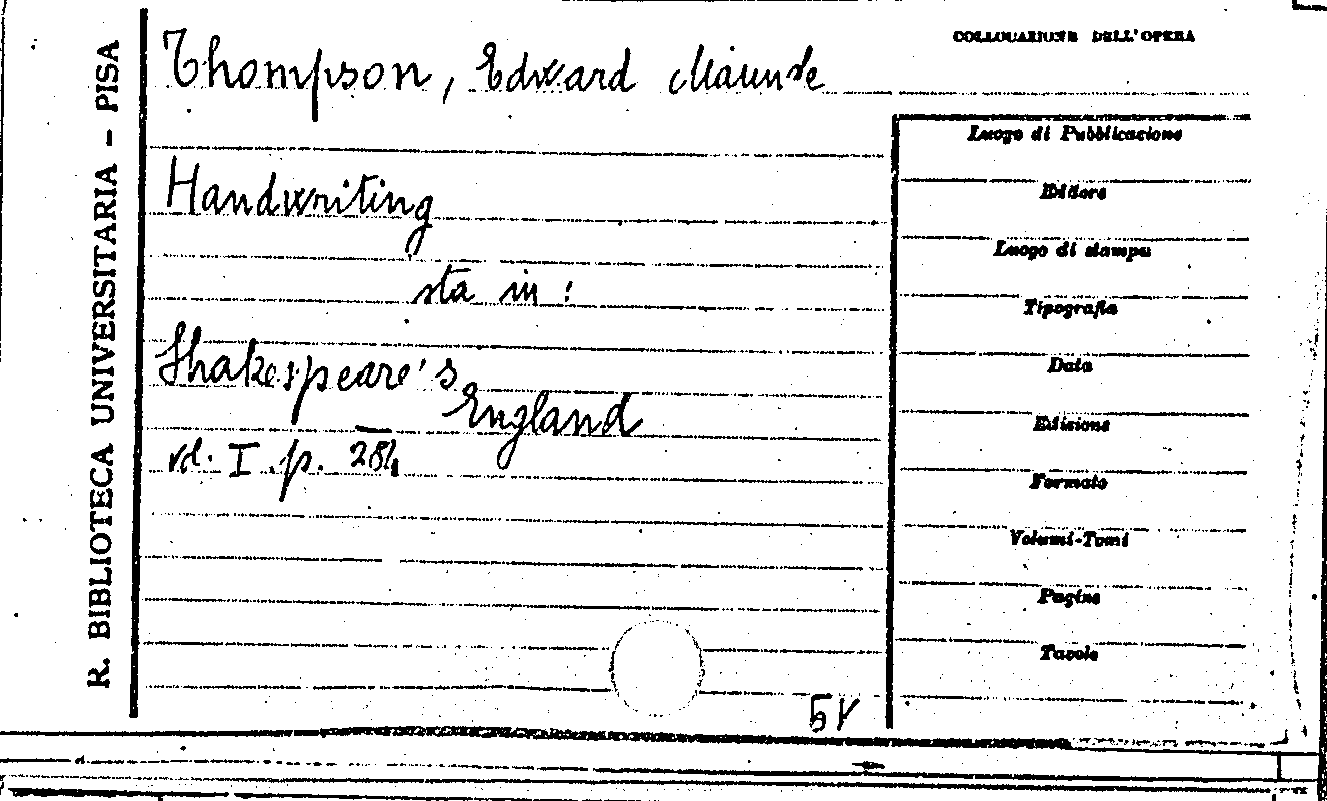 R. BIBLIOTECA UNIVERSITARIA - PISA
COLLOCAZIONE DELL'OPERA
Thompson, Edward Maunde
Handwriting
sta in:
Shakespeare's
England
vol. I. p. 284
Luogo di Pubblicazione
Editore
Luogo di stampa
Tipografia
Data
Edizione
Formato
Volumi-Tomi
Pagine
Tavole